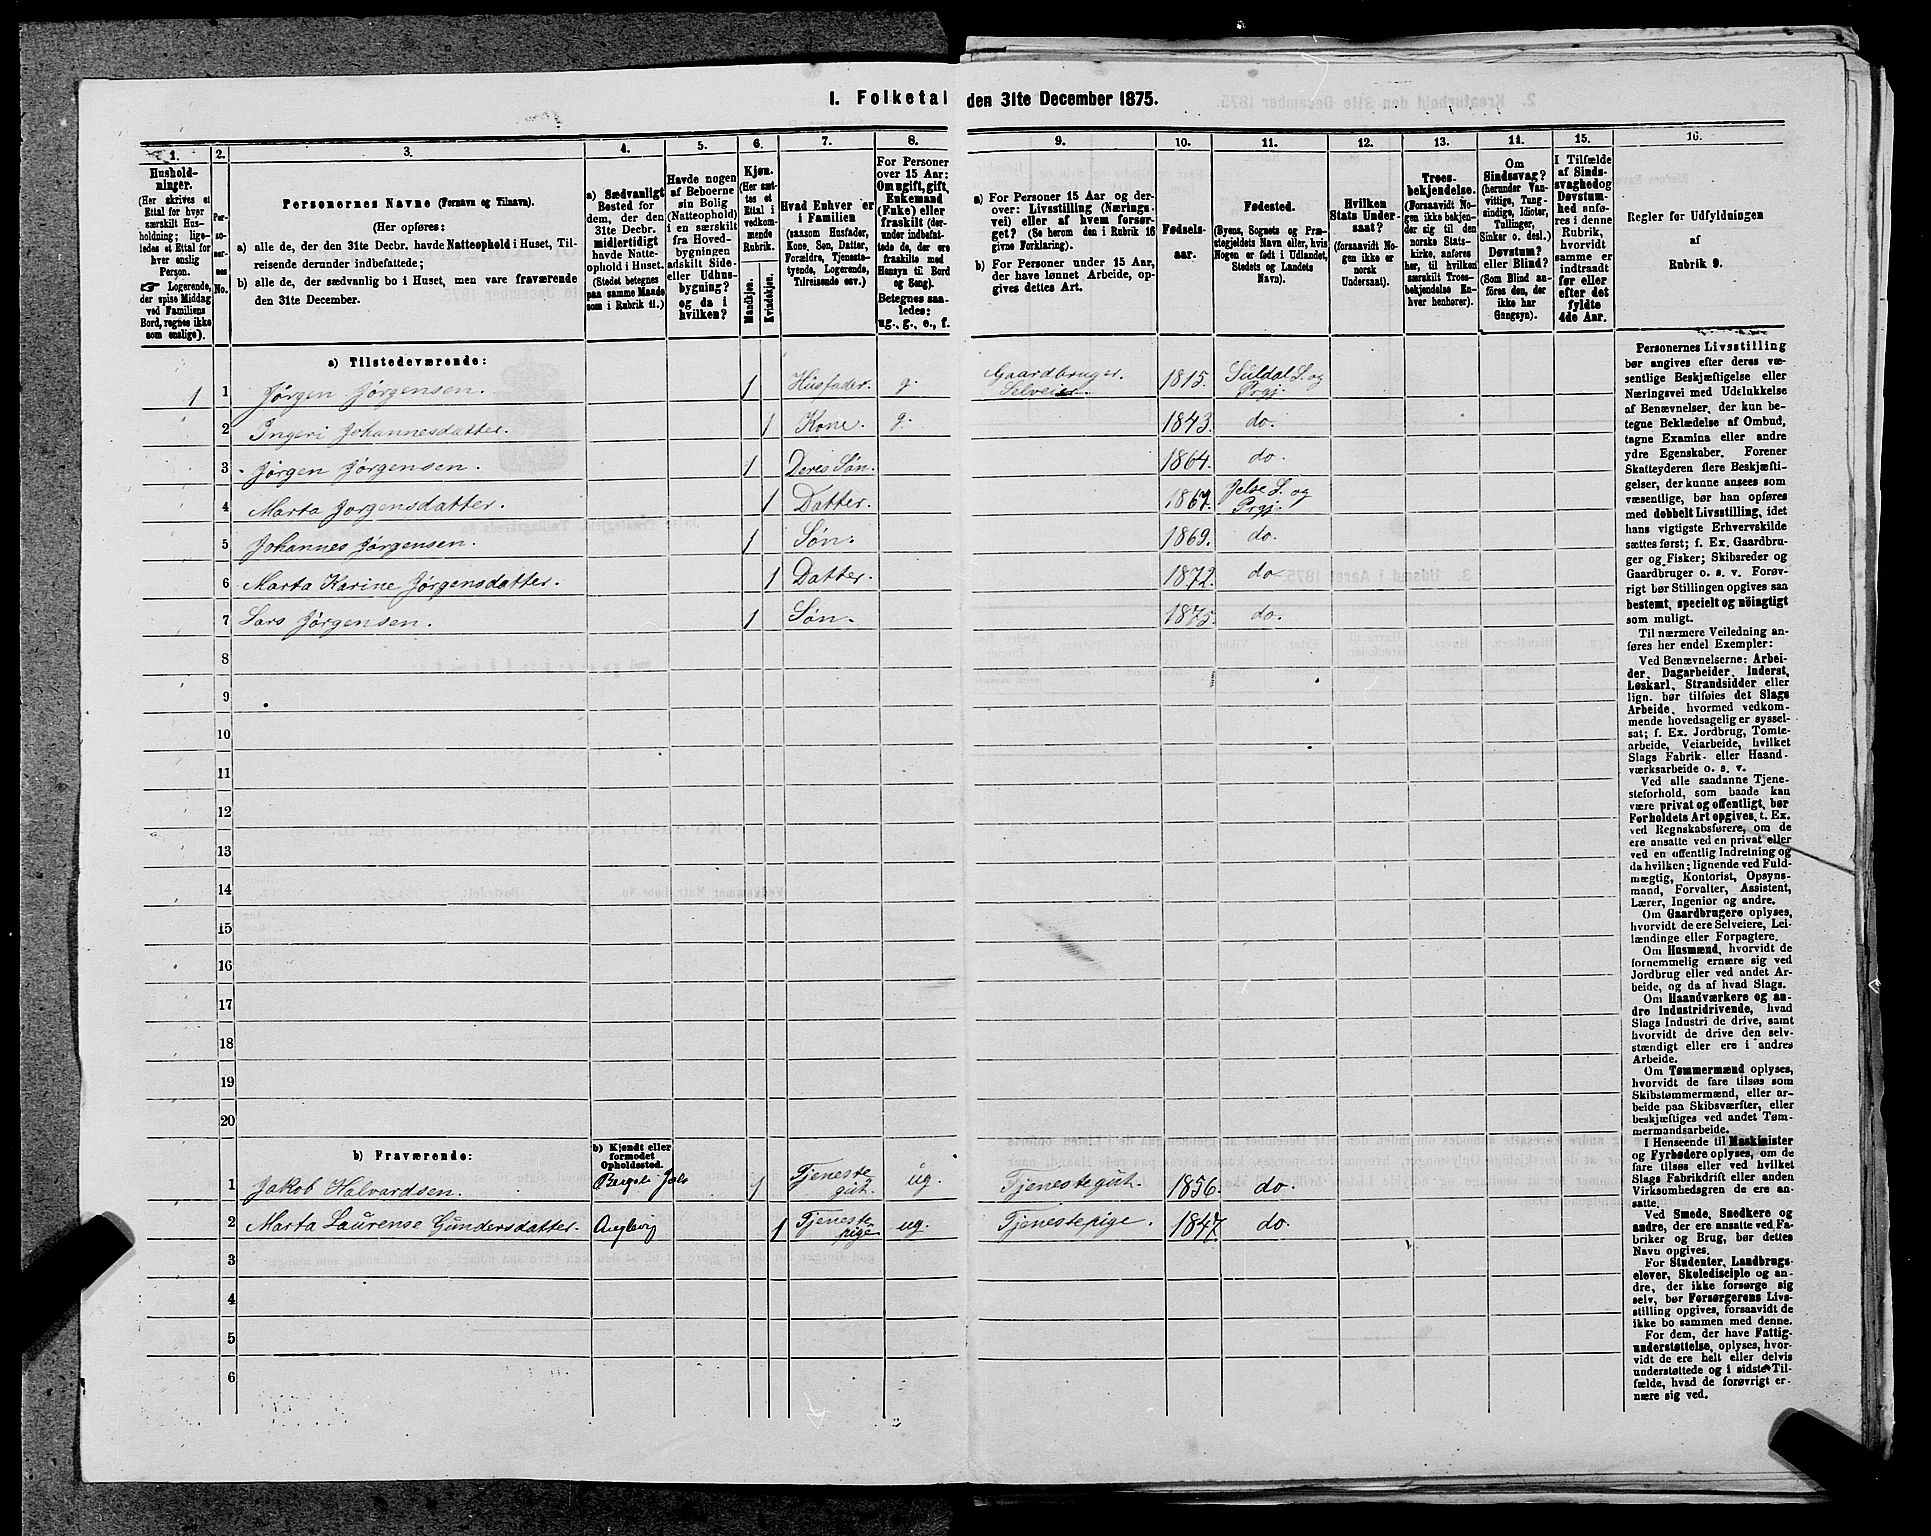 I. Folketal den 31te December 1875.
1.
2.
3.
4.
5.
6.
7.
8.
9.
10.
11.
12.
13.
14.
15.
16.
Husholdninger.
(Her skrives et
Ettal for hver
særskilt Husholdning;
ligeledes et Ettal for
hver enslig
Person.
☞ Logerende,
der spise Middag
ved Familiens
Bord, regnes ikke
som enslige).
Personernes No.
Personernes Navne (Fornavn og Tilnavn).
(Her opføres:
a) alle de, der den 31te Decbr. havde Natteophold i Huset, Tilreisende derunder indbefattede;
b) alle de, der sædvanlig bo i Huset, men vare fraværende
den 31te December.
a) Sædvanligt
Bosted for
dem, der den
31te Decbr.
midlertidigt
havde Natteophold i Huset.
(Stedet betegnes
paa samme Maade
som i Rubrik 11.)
Havde nogen
af Beboerne
sin Bolig
(Natteophold)
i en særskilt
fra Hovedbygningen
adskilt Side- eller Udhusbygning?
og da i
hvilken?
Kjøn.
(Her sættes et
Ettal i
vedkommende
Rubrik.
Mandkjøn.
Kvindekjøn.
Hvad Enhver er
i Familien
(saasom Husfader,
Kone, Søn, Datter,
Forældre, Tjenestetyende, Logerende,
Tilreisende osv.)
For Personer
over 15 Aar:
Om ugift, gift,
Enkemand
(Enke) eller
fraskilt (derunder indbefattede de, der ere
fraskilte med
Hensyn til Bord
og Seng).
Betegnes saaledes:
ug., g., e., f.
a) For Personer 15 Aar og derover: Livsstilling (Næringsvei) eller af hvem forsørget? (Se herom den i Rubrik 16
givne Forklaring).
b) For Personer under 15 Aar,
der have lønnet Arbeide, opgives dettes Art.
Fødselsaar.
Fødested.
(Byens, Sognets og Præstegjeldets Navn eller, hvis
Nogen er født i Udlandet,
Stedets og Landets
Navn).
Hvilken
Stats Undersaat?
(forsaavidt Nogen ikke er
norsk
Undersaat).
Troesbekjendelse.
(Forsaavidt Nogen ikke bekjender sig til den
norske Statskirke, anføres
her, til hvilken
særskilt Troesbekjendelse Enhver henhører).
Om
Sindssvag?
(herunder Vanvittige, Tungsindige, Idioter,
Tullinger,
Sinker o. desl.)
Døvstum?
eller Blind?
(Som Blind anføres den, der
ikke har
Gangsyn).
I Tilfælde
af Sindssvaghed og
Døvstumhed anføres i denne
Rubrik,
hvorvidt
samme er
indtraadt
før eller
efter det
fyldte
4de Aar.
Regler for Udfyldningen
af
Rubrik 9.
a) Tilstedeværende:
1 1 Jørgen Jørgensen. 1 Husfader. g. Gaardbruger. Selveier. 1815. Suldal S. og Prgj.
2 Ingeri Johannesdatter. 1 Kone. g. 1843. do.
3 Jørgen Jørgensen. 1 Deres Søn. 1864. do.
4 Marta Jørgensdatter. 1 Datter. 1867. Jelse S. og Prgj.
5 Johannes Jørgensen. 1 Søn. 1869. do.
6 Marta Karine Jørgensdatter. 1 Datter. 1872. do
7 Lars Jørgensen. 1 Søn. 1875. do.
8
9
10
11
12
13
14
15
16
17
18
19
20
b) Fraværende:
b) Kjendt eller
formodet
Opholdssted.
1 Jakob Halvardsen. 1 Tjenestegut. ug. Tjenestegut. 1856. do.
2 Marta Laurense Gundersdatter. 1 Tjenestepige ug. Tjenestepige. 1847. do.
3
4
5
6
Personernes Livsstilling
bør angives efter deres væsentlige Beskjæftigelse eller
Næringsvei med Udelukkelse
af Benævnelser, der kun betegne Beklædelse af Ombud,
tagne Examina eller andre
ydre Egenskaber. Forener
Skatteyderen flere Beskjæftigelser, der kunne ansees som
væsentlige, bør han opføres
med dobbelt Livsstilling, idet
hans vigtigste Erhvervskilde
sættes først; f. Ex. Gaardbruger og Fisker; Skibsreder og
Gaardbruger o. s. v. Forøvrigt bør Stillingen opgives saa
bestemt, specielt og nöiagtigt
som muligt.
Til nærmere Veiledning anføres her endel Exempler:
Ved Benævnelserne: Arbeider, Dagarbeider, Inderst,
Løskarl, Strandsidder eller
lign. bør tilføies det Slags
Arbeide, hvormed vedkommende hovedsagelig er sysselsat; f. Ex. Jordbrug, Tomtearbeide, Veiarbeide, hvilket
Slags Fabrik- eller Haandværksarbeide o. s. v.
Ved alle saadanne Tjenesteforhold, som baade kan
være privat og offentligt, bør
Forholdets Art opgives, t. Ex.
ved Regnskabsførere, om de
ere ansatte ved en privat eller
ved en offentlig Indretning og
da hvilken; lignende ved Fuldmægtig, Kontorist, Opsynsmand, Forvalter, Assistent,
Lærer, Ingeniør og andre.
Om Gaardbrugere oplyses,
hvorvidt de ere Selveiere, Leilændinge eller Forpagtere.
Om Husmænd, hvorvidt de
fornemmelig ernære sig ved
Jordbrug eller ved andet Arbeide, og da af hvad Slags.
Om Haandværkere og andre Industridrivende, hvad
Slags Industri de drive, samt
hvorvidt de drive den selvstændigt eller ere i andres
Arbeide.
Om Tømmermænd oplyses,
hvorvidt de fare tilsøs som
Skibstømmermænd, eller arbeide paa Skibsværfter, eller
beskjæftiges ved andet Tømmermandsarbeide.
I Henseende til Maskinister
og Fyrbødere oplyses, om de
fare tilsøs eller ved hvilket
Slags Fabrikdrift eller anden
Virksomhedsgren de ere ansatte.
Ved Smede, Snedkere og
andre, der ere ansatte ved Fabriker og Brug, bør dettes
Navn opgives.
For Studenter, Landbrugselever, Skoledisciple og andre, der ikke forsørge sig
selv, bør Forsørgerens Livsstilling opgives, forsaavidt de
ikke bo sammen med denne.
For dem, der have Fattigunderstøttelse, oplyses, hvorvidt de ere helt eller delvis
understøttede og i sidste Tilfælde, hvad de forøvrigt ernære sig ved.